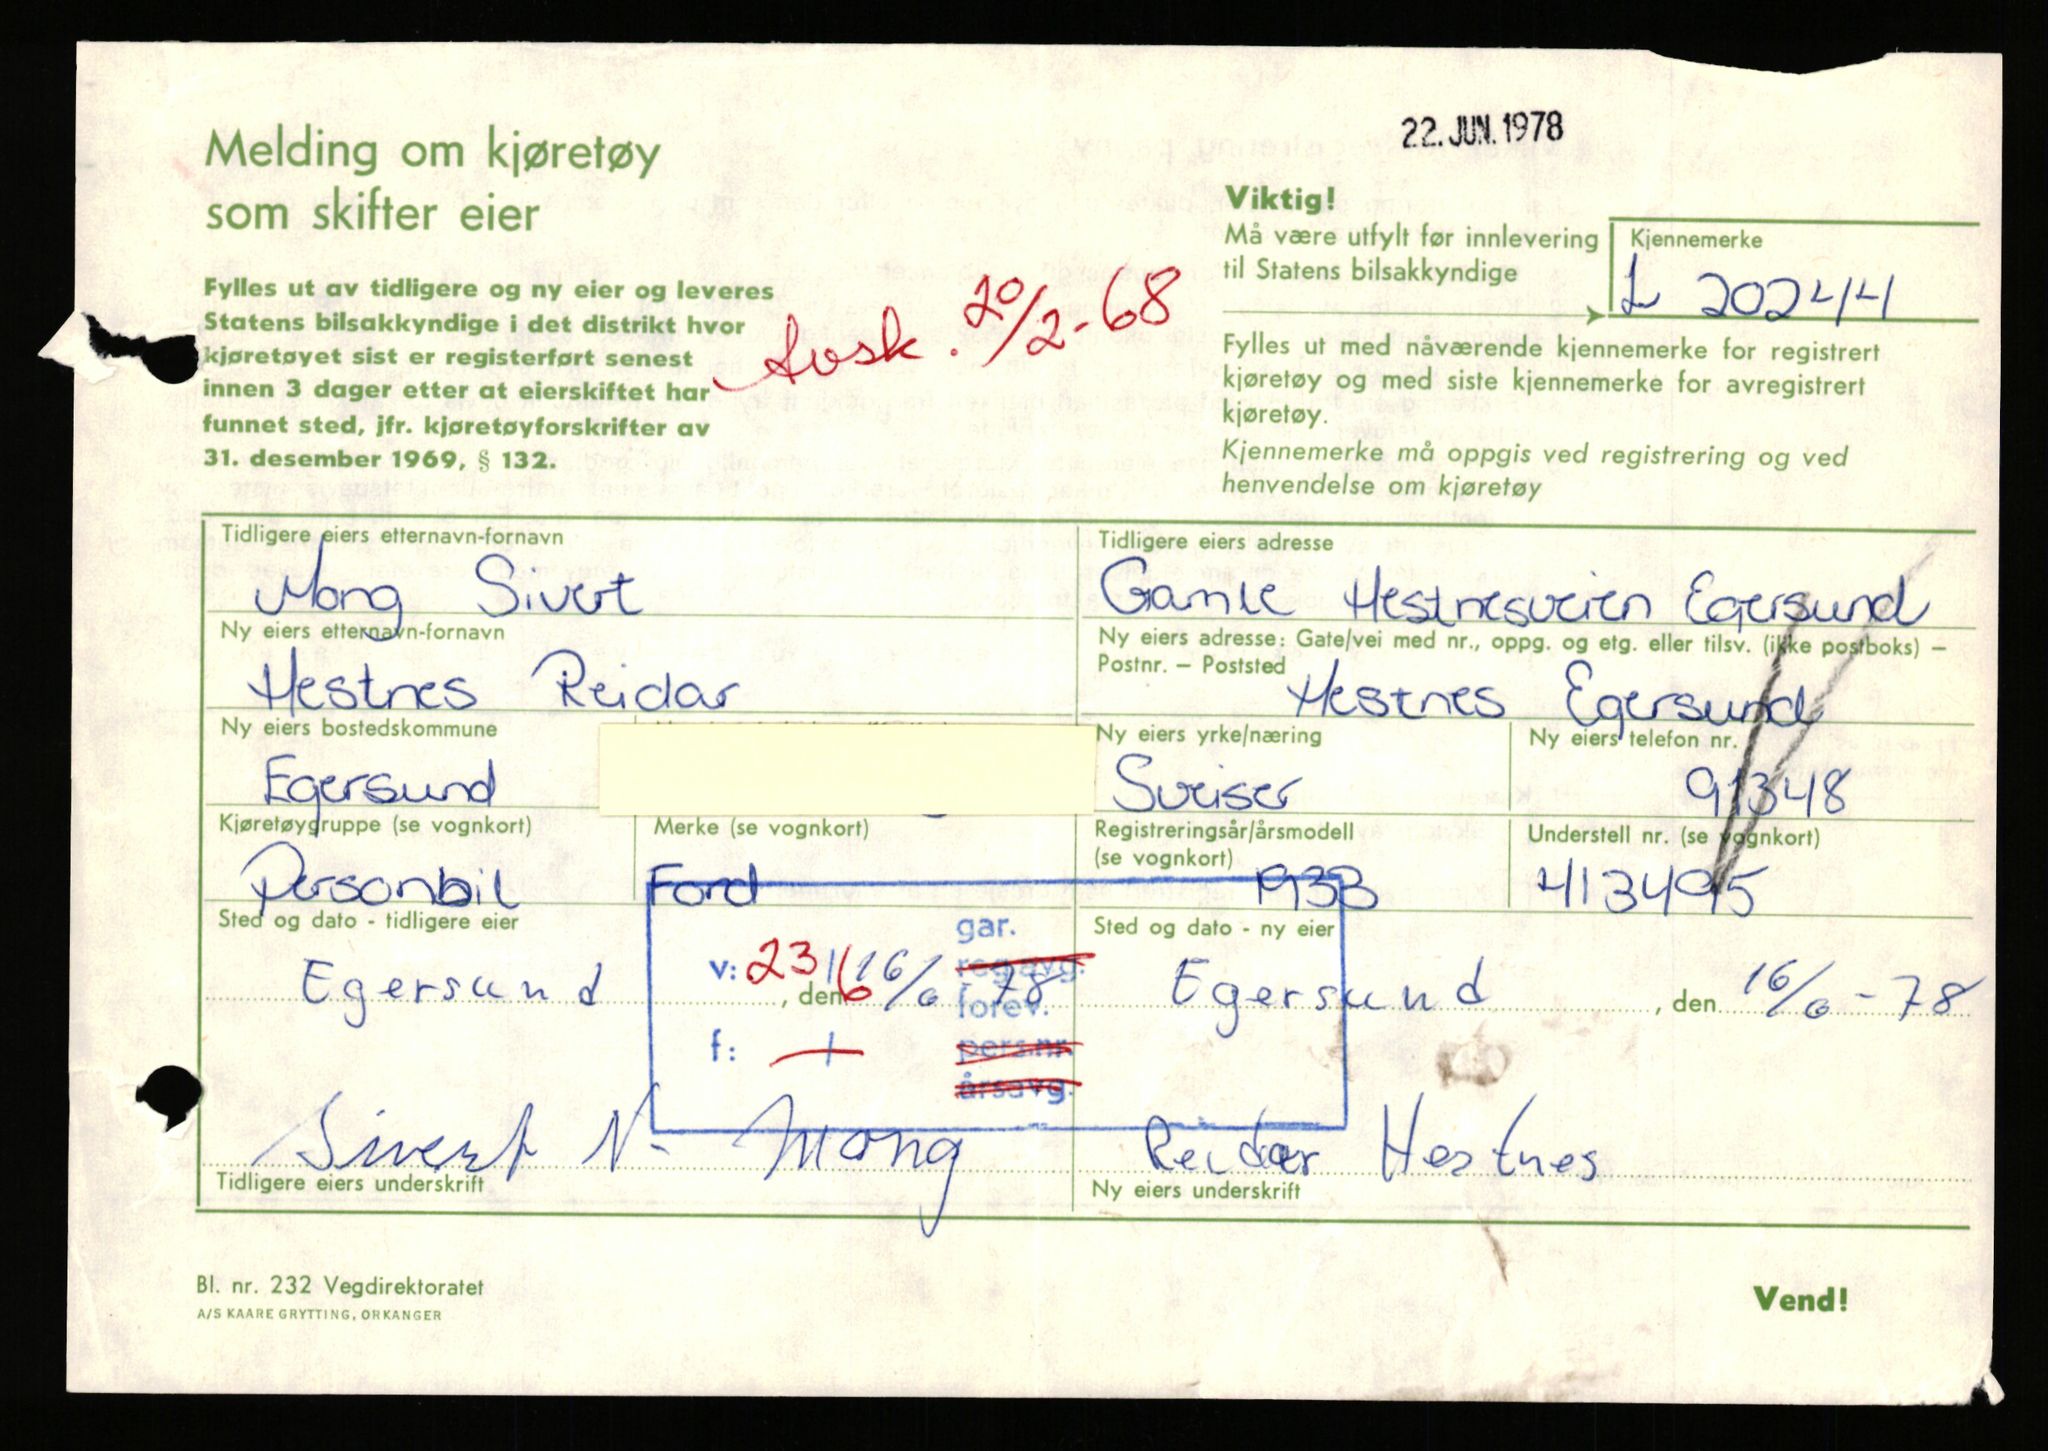 22. JUN. 1978
Melding om kjøretøy
som skifter eier
Viktig!
Må være utfylt før innlevering
til Statens bilsakkyndige
Kjennemerke
L 20244
Fylles ut av tidligere og ny eier og leveres
Statens bilsakkyndige i det distrikt hvor
kjøretøyet sist er registerført senest
innen 3 dager etter at eierskiftet har
funnet sted, jfr. kjøretøyforskrifter av
31. desember 1969, § 132.
Avsk. 20/2-68
Fylles ut med nåværende kjennemerke for registrert
kjøretøy og med siste kjennemerke for avregistrert
kjøretøy.
Kjennemerke må oppgis ved registrering og ved
henvendelse om kjøretøy
Tidligere eiers etternavn-fornavn
Mong Sivert
Tidligere eiers adresse
Gamle Hestnesveien Egersund
Ny eiers etternavn-fornavn
Hestnes Reidar
Ny eiers adresse: Gate/vei med nr., oppg. og etg. eller tilsv. (ikke postboks) –
Postnr. – Poststed
Hestnes Egersund
Ny eiers bostedskommune
Egersund
Ny eiers yrke/næring
Sveiser
Ny eiers telefon nr.
91348
Kjøretøygruppe (se vognkort)
Personbil
Merke (se vognkort)
Ford
Registreringsår/årsmodell
(se vognkort)
1933
Understell nr. (se vognkort)
413495
Sted og dato - tidligere eier
Egersund, den 16/6 78
Sted og dato - ny eier
Egersund, den 16/6-78
gar.
v: 23/6
reg.avg.
forev.
f:
pers.nr.
årsavg.
Sivert N. Mong
Tidligere eiers underskrift
Reidar Hestnes
Ny eiers underskrift
Bl. nr. 232 Vegdirektoratet
A/S KAARE GRYTTING, ORKANGER
Vend!